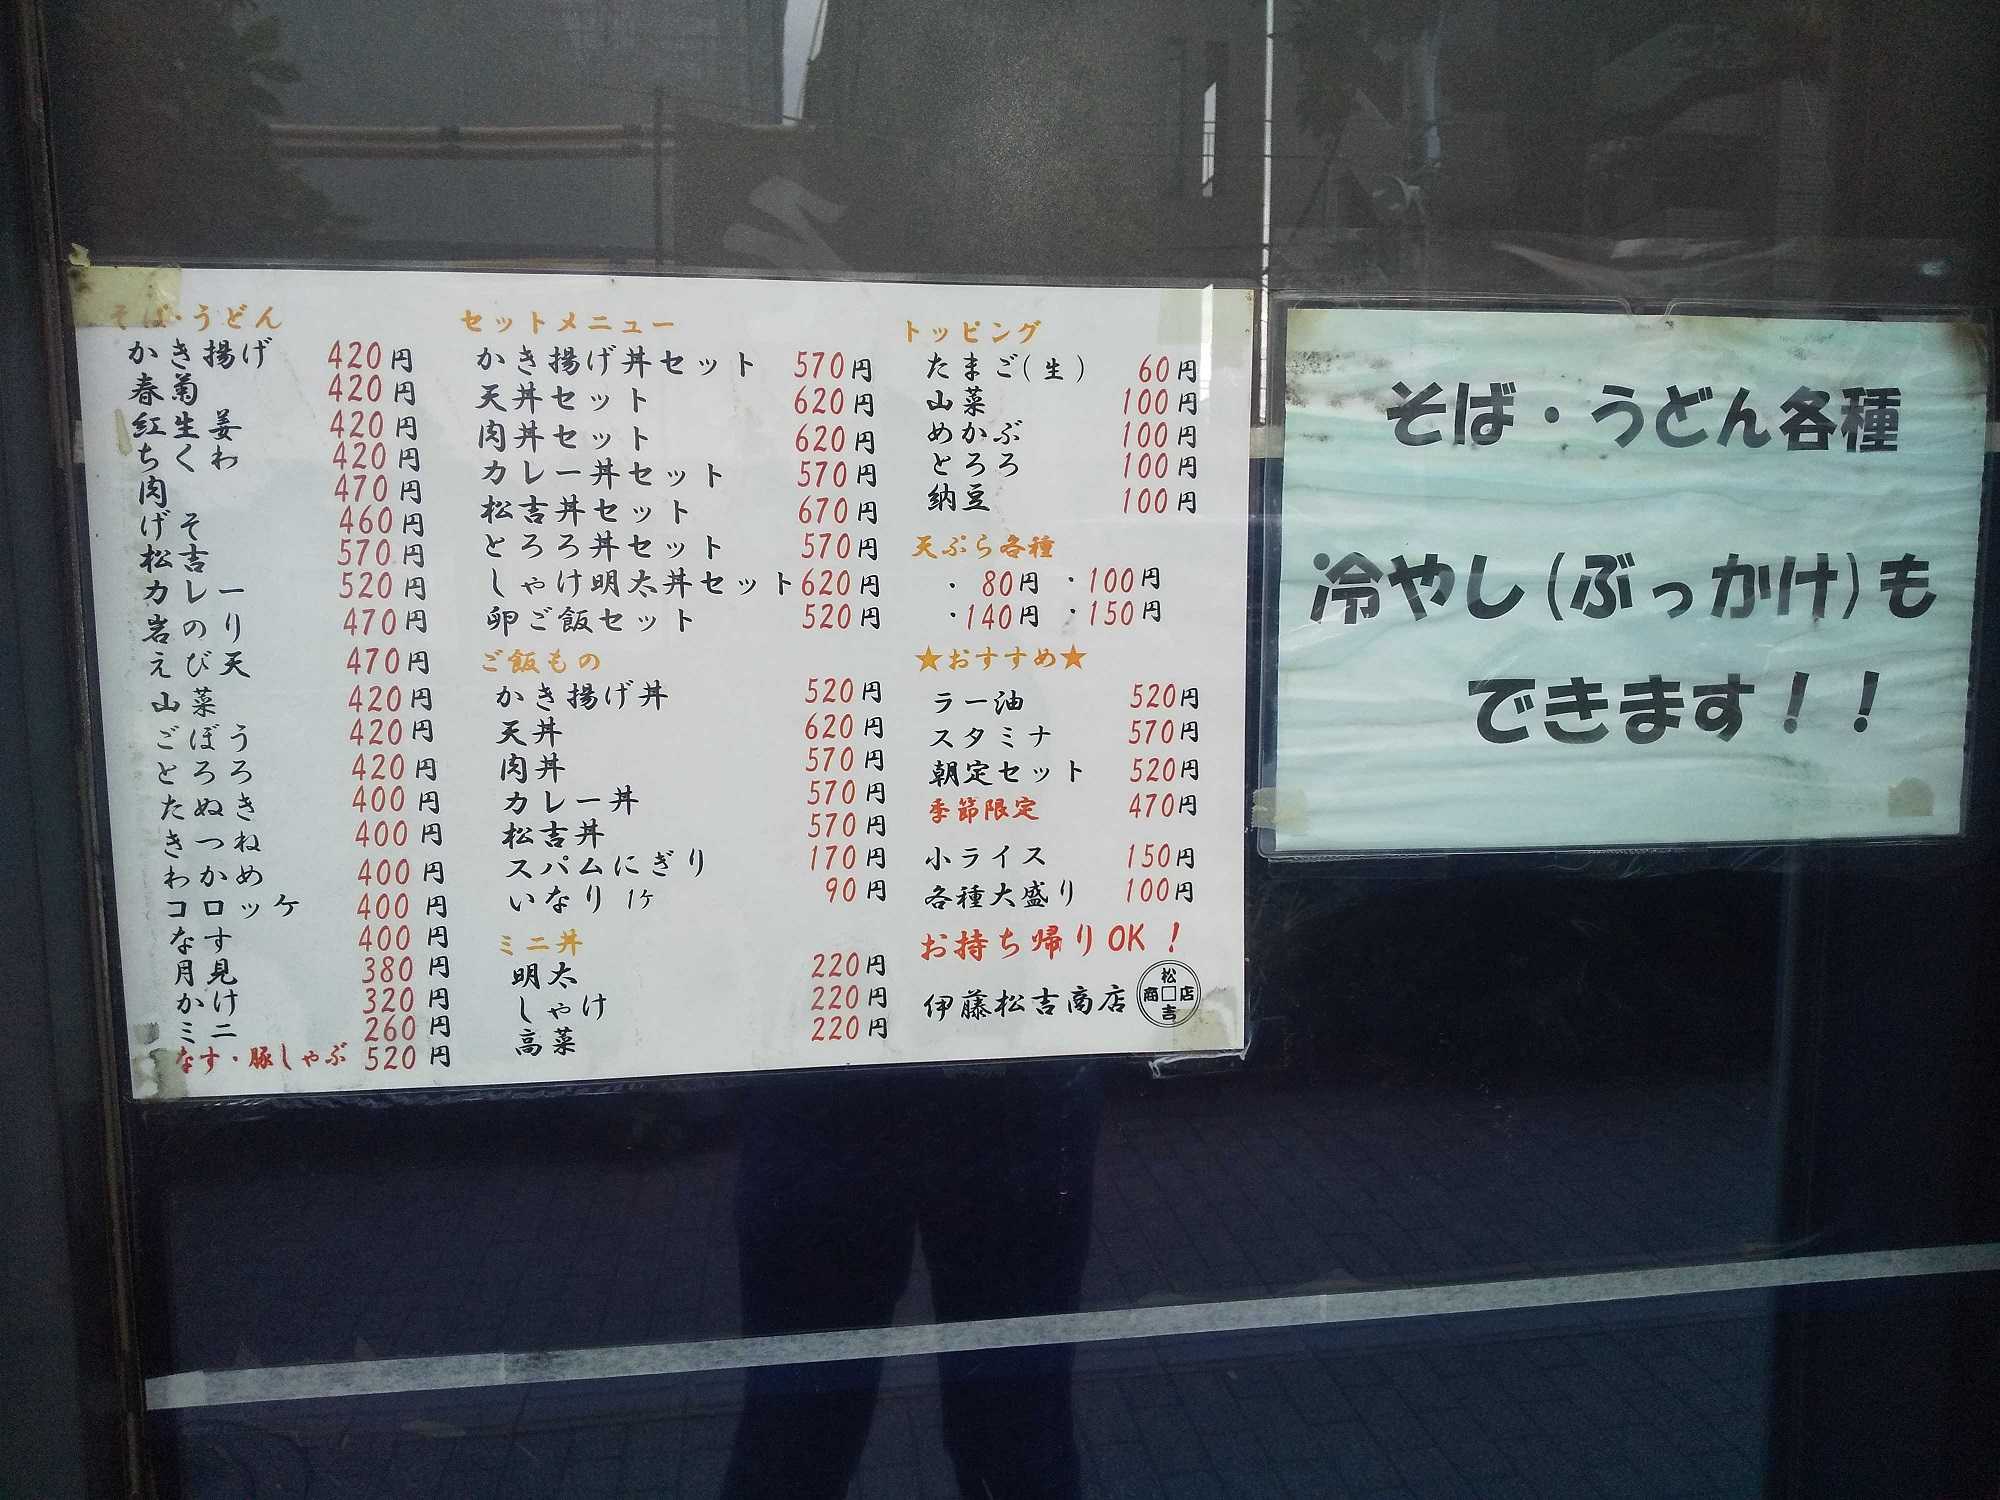 そば・うどん
かき揚げ 420円
春菊 420円
紅生姜 420円
ちくわ 420円
肉 470円
げそ 460円
松吉 570円
カレー 520円
岩のり 470円
えび天 470円
山菜 420円
ごぼう 420円
とろろ 420円
たぬき 400円
きつね 400円
わかめ 400円
コロッケ 400円
なす 400円
月見 380円
かけ 320円
ミニ 260円
なす・豚しゃぶ 520円
セットメニュー
かき揚げ丼セット 570円
天丼セット 620円
肉丼セット 620円
カレー丼セット 570円
松吉丼セット 670円
とろろ丼セット 570円
しゃけ明太丼セット 620円
卵ご飯セット 520円
ご飯もの
かき揚げ丼 520円
天丼 620円
肉丼 570円
カレー丼 570円
松吉丼 570円
スパムにぎり 170円
いなり 1ケ 90円
ミニ丼
明太 220円
しゃけ 220円
高菜 220円
トッピング
たまご(生) 60円
山菜 100円
めかぶ 100円
とろろ 100円
納豆 100円
天ぷら各種
・80円 ・100円
・140円 ・150円
★おすすめ★
ラー油 520円
スタミナ 570円
朝定セット 520円
季節限定 470円
小ライス 150円
各種大盛り 100円
お持ち帰りOK！
伊藤松吉商店
松吉商店
そば・うどん各種
冷やし(ぶっかけ)も
できます！！